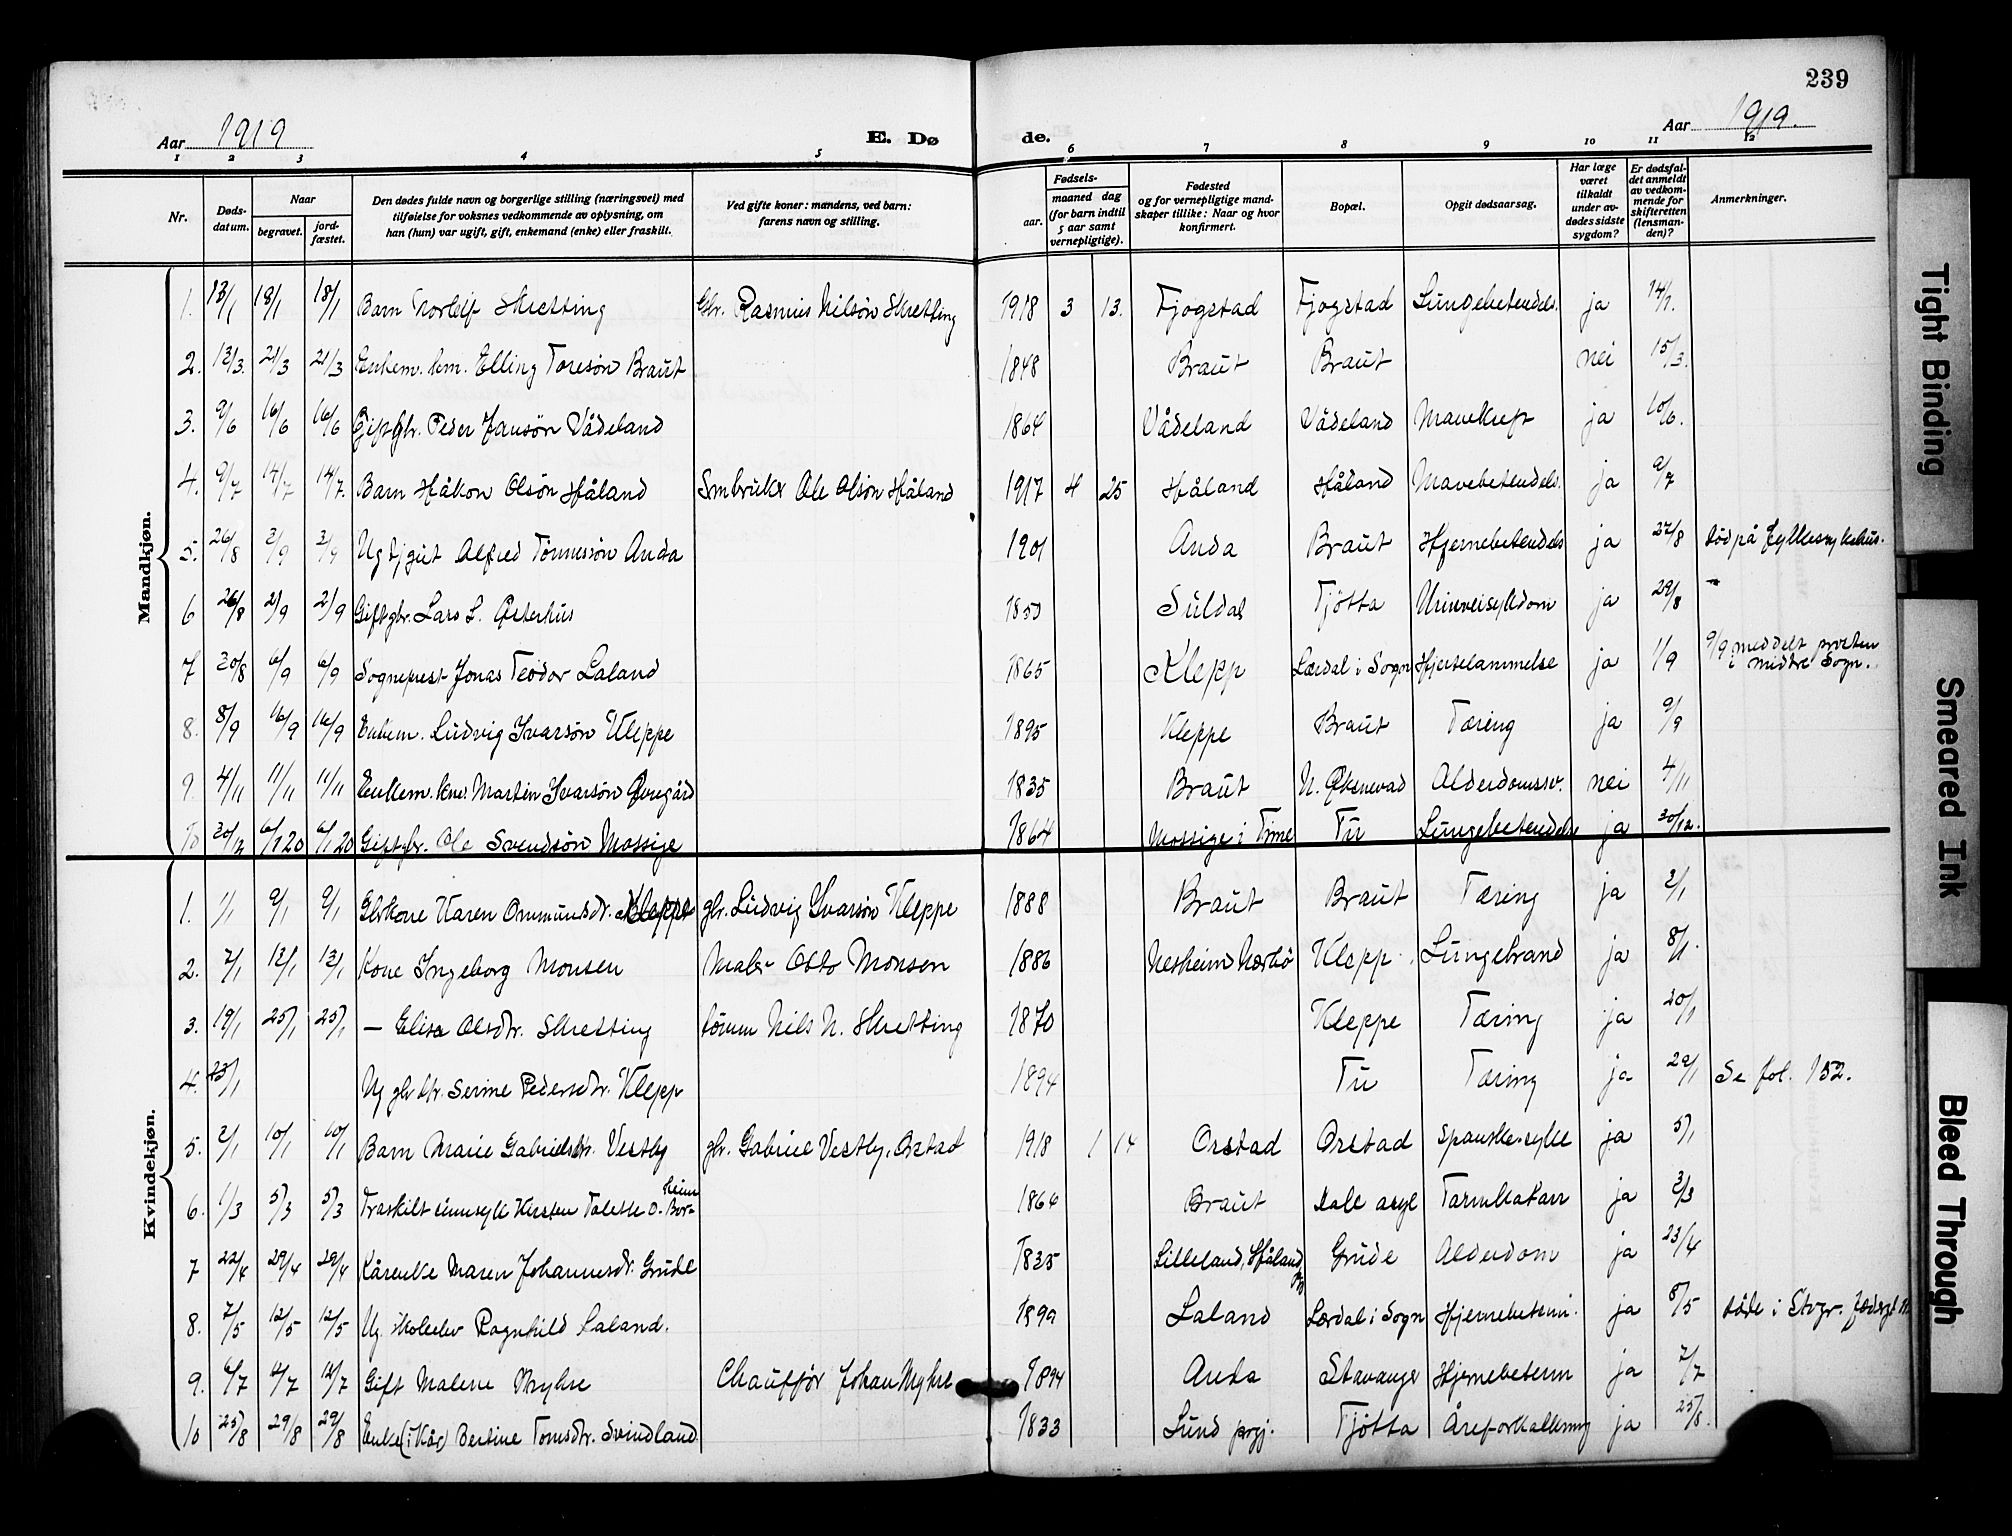 239
Aar 1919 E. Dø de. Aar 1919.
1 2 3 4 5 6 7 8 9 10 11 12
Nr. Døds-datum. Naar begravet. jord-fæstet. Den dødes fulde navn og borgerlige stilling (næringsvei) med tilføielse for voksnes vedkommende av oplysning, om han (hun) var ugift, gift, enkemand (enke) eller fraskilt. Ved gifte koner: mandens, ved barn: farens navn og stilling. Fødsels- aar. maaned dag (for barn indtil 5 aar samt vernepligtige). Fødested og for vernepligtige mand-skaper tillike: Naar og hvor konfirmert. Bopæl. Opgit dødsaarsag. Har læge været tilkaldt under av-dødes sidste sygdom? Er dødsfal-det anmeldt av vedkom-mende for skifteretten (lensman-den)? Anmerkninger.
Mandkjøn.
1. 13/1 18/1 18/1 Barn Norleif Skretting Gbr. Rasmus Nilsøn Skretting 1918 3 13. Fjogstad Fjogstad Lungebetendels. ja 14/1.
2. 13/3. 21/3 21/3 Enkem. km. Elling Toresøn Braut 1848 Braut Braut nei 15/3.
3. 9/6 16/6 16/6 Gift gbr. Peder Jansøn Vådeland 1864 Vådeland Vådeland Mavekreft ja 10/6.
4. 9/7 14/7 14/7. Barn Håkon Olsøn Håland Smbruker Ole Olsøn Håland 1917 4 25 Håland Håland Mavebetendels. ja 9/7
5. 26/8 2/9 2/9 Ug tjgut Alfred Tønnessøn Anda 1901 Anda Braut Hjernebetendels ja 27/8 død på fylkessykehus.
6 26/8 2/9 2/9 Gift gbr. Lars L. Østerhus 1853 Suldal Tjøtta Urinveisykdom ja 29/8 "
7 30/8 6/9 6/9 Sogneprest Jonas Teodor Laland 1865 Klepp Lærdal i Sogn Hjertelammelse ja 1/9 9/9 meddelt prosten i midtre Sogn.
8. 8/9 16/9 16/9 Enkem. Ludvig Ivarsøn Kleppe 1895 Kleppe Braut Tæring ja 9/9
9. 4/11 11/11 11/11 Enkem. km. Martin Ivarsøn Øvregård 1835 Braut N. Øksnevad Alderdomssv. nei 4/11
10 30/12 6/1 20 6/1 20 Gift gbr. Ole Svendsøn Mossige 1864 Mossige i Time Tu Lungebetendelse ja 30/12.
Kvindekjøn.
1. 1/1 9/1 9/1 Gbrkone Karen Ommundsdr. Kleppe gbr. Ludvig Ivarsøn Kleppe 1888 Braut Braut Tæring ja 2/1
2. 7/1 13/1 13/1 Kone Ingeborg Monsen Maler Otto Monsen 1886 Nesheim Nærbø Klepp Lungebrand ja 8/1.
3. 19/1 25/1 25/1 — Elisa Olsdtr. Skretting Nils N. Skretting 1870 Kleppe Tæring ja 20/1
4. 23/1 Ug gbr dtr. Serine Pedersdtr. Klepp 1894 Tu Tæring ja 29/1 Se fol. 152.
5. 2/1 10/1 10/1 Barn Marie Gabrielsdtr. Vestby gbr. Gabriel Vestby, Orstad 1918 1 14 Orstad Orstad Spanske syke ja 5/1
6. 1/3 5/3 5/3 Fraskilt sinnsyk Kirsten Talette O. Bor-heim 1864 Braut Dale asyl Tarmkatarr ja 3/3
7 22/4 29/4 29/4 Kårenke Maren Johannesdr. Grude 1835 Lilleland, Håland Grude Alderdom ja 23/4
8. 7/5 12/5 12/5 Ug. skoleelev Ragnhild Laland. 1899 Laland Lærdal i Sogn Hjernebetenn. ja 8/5 døde i Stvgr.
9. 6/7 12/7 12/7 Gift Malene Myhre Chauffør Johan Myhre 1894 Anda Stavanger Hjernebetenn ja 7/7
10 25/8 29/8 29/8 Enke (i kår) Bertine Tomsdtr. Svindland 1833 Lund prgj. Tjøtta Åreforkalkning ja 25/8.
Tight Binding
Smeared Ink
Bleed Through